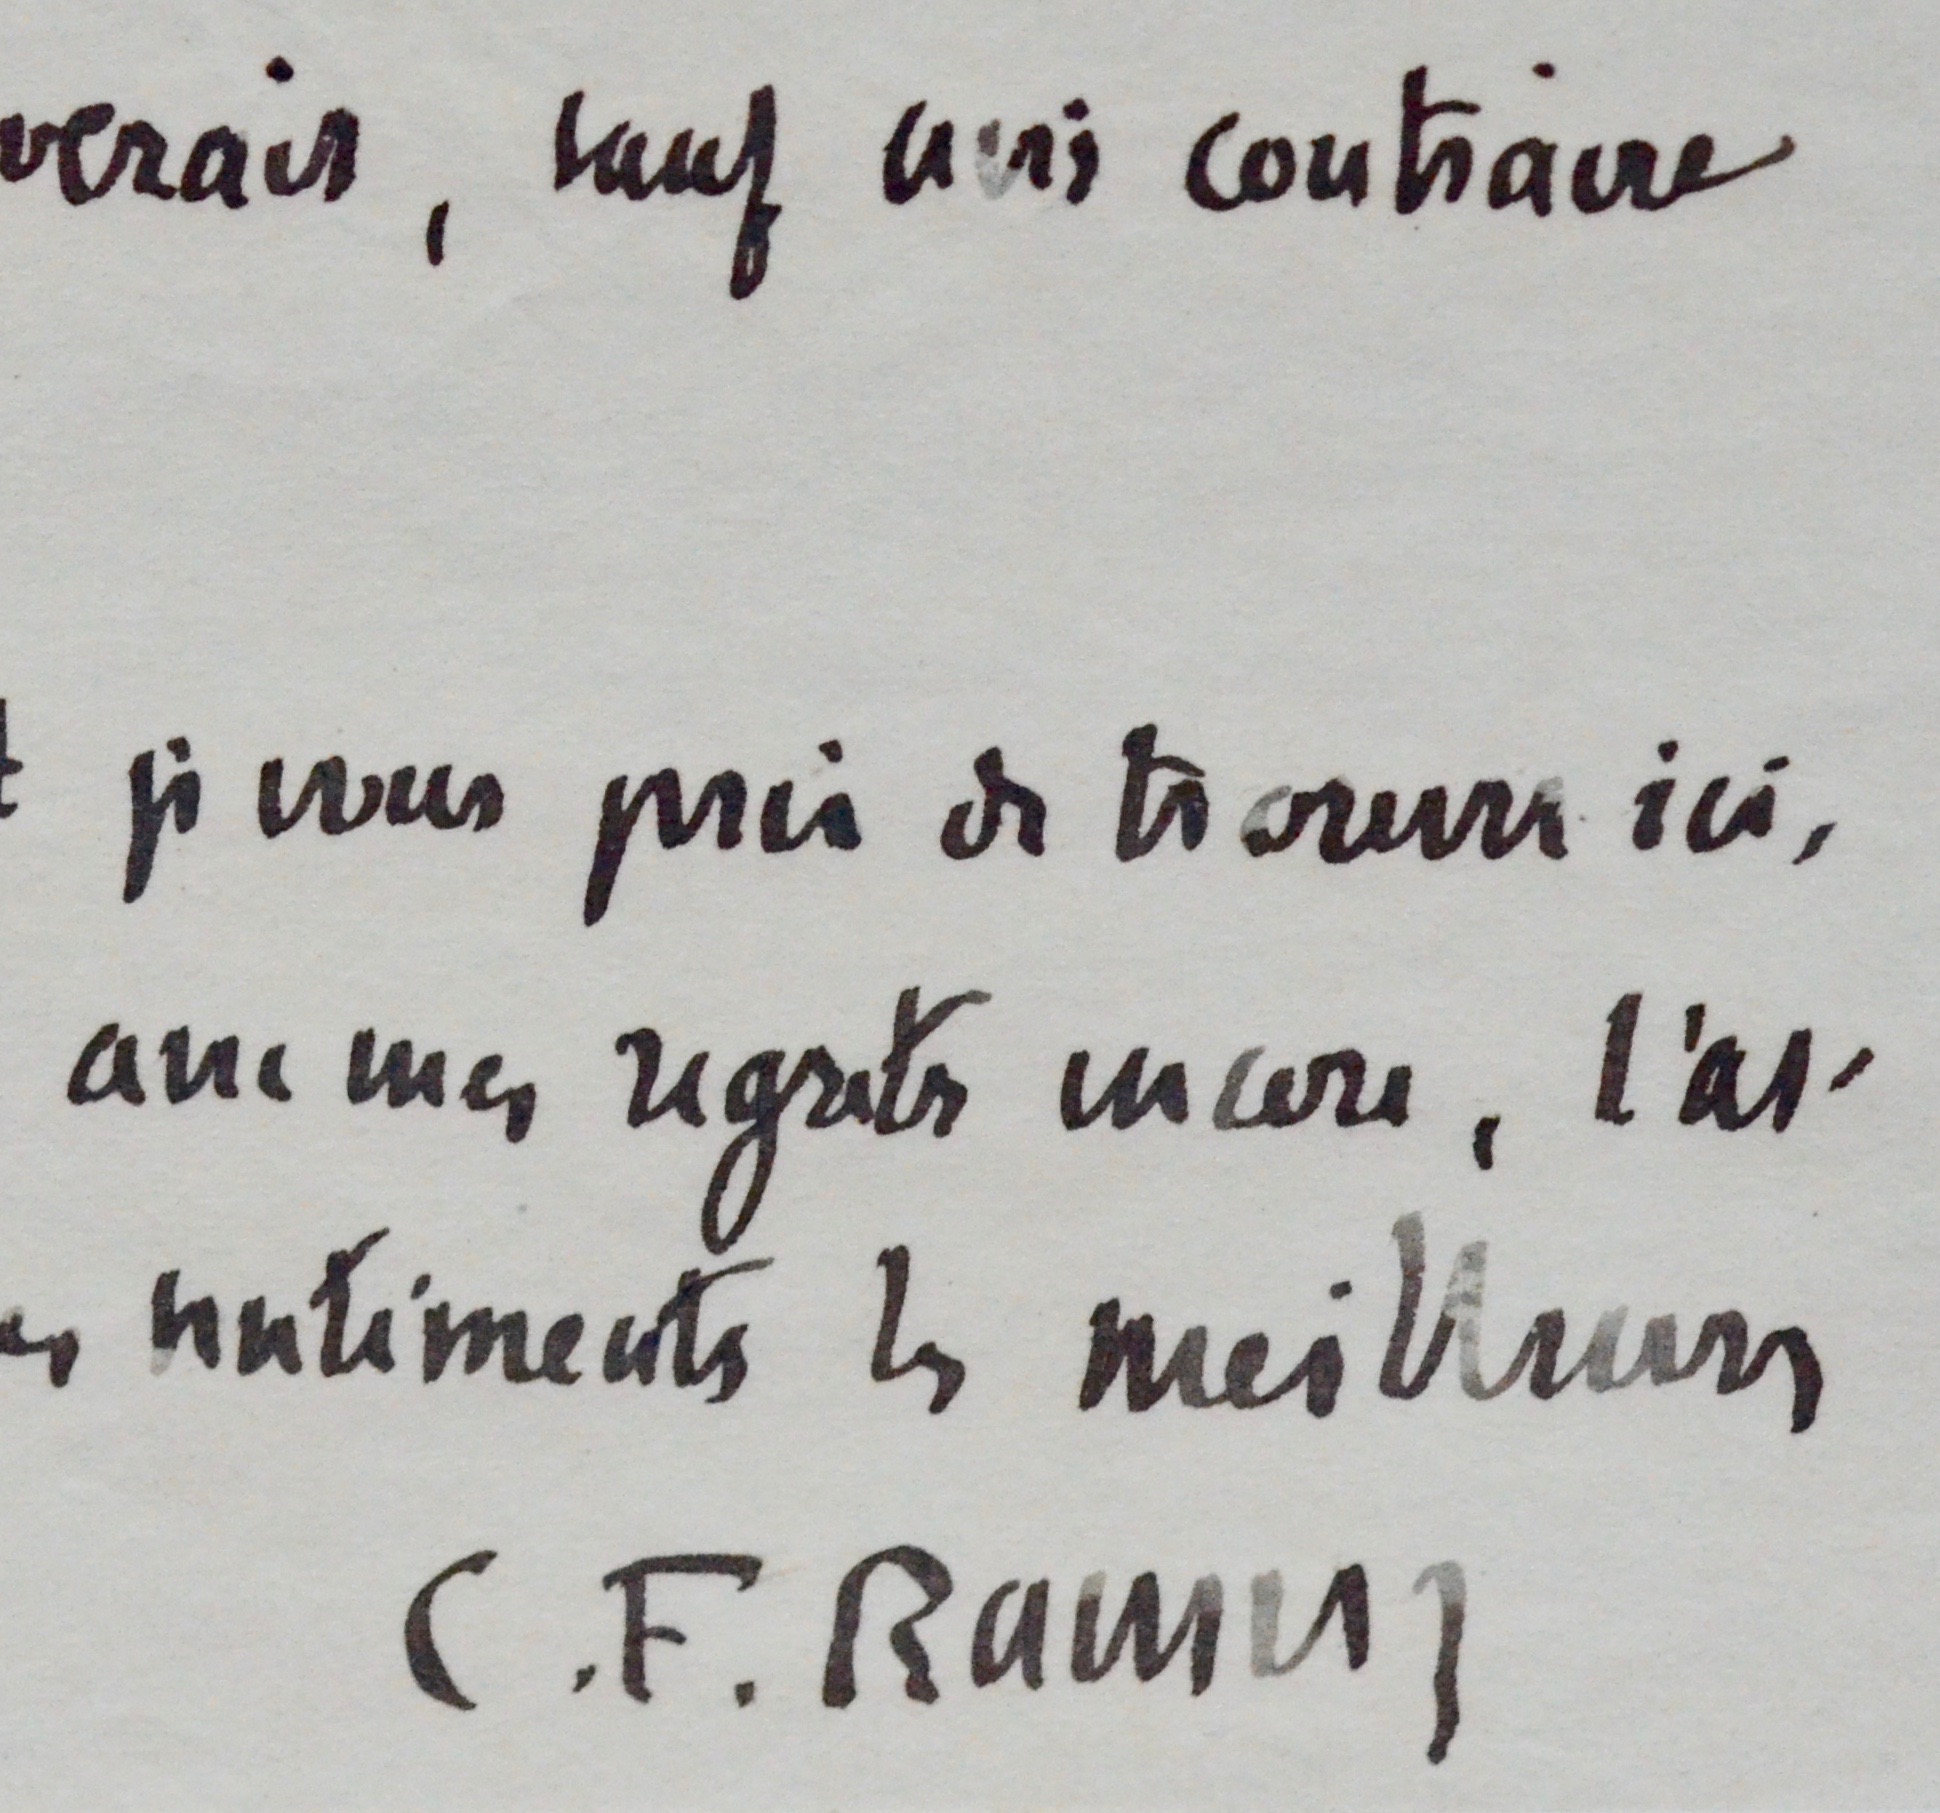 verais, sauf avis contraire
t je vous prie de trouver ici,
avec mes regrets encore, l'as-
es sentiments les meilleurs
C.F. Ramuz